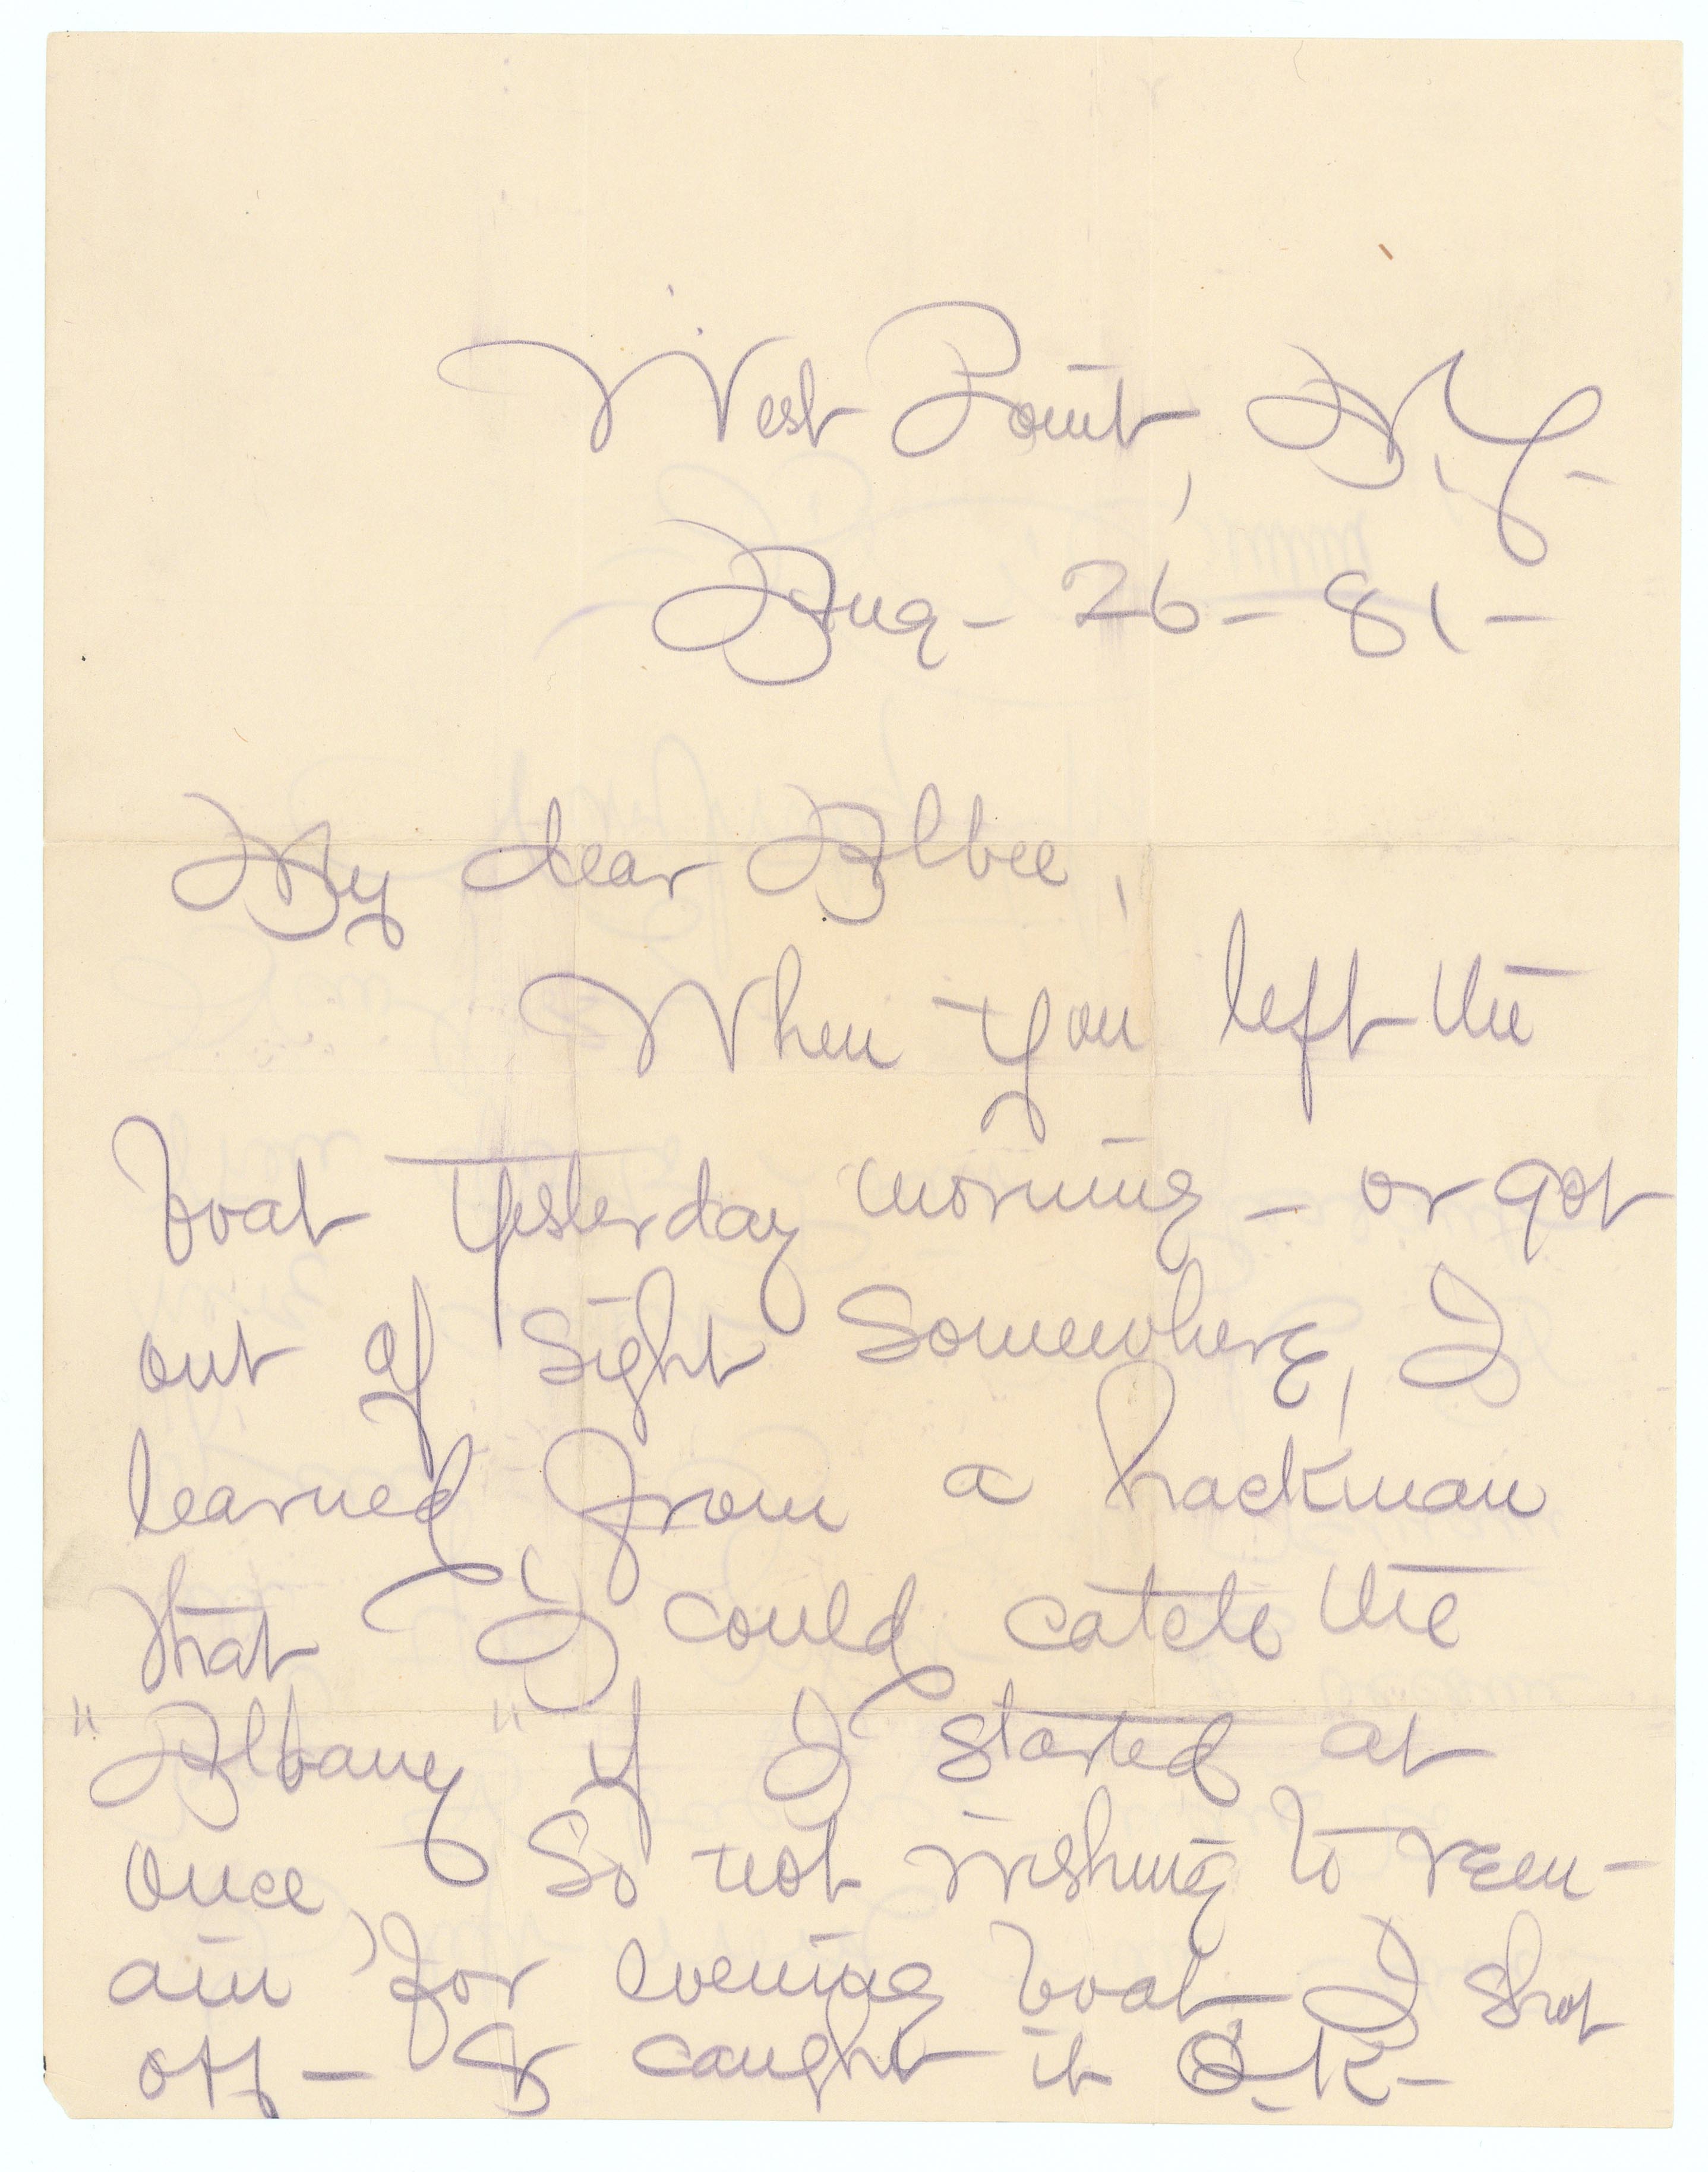 West Point, N.Y-
Aug- 26- 81-
My dear Albee,
When you left the
boat yesterday morning - or got
out of sight somewhere, I
learned from a hackman
that I could catch the
"Albany" if I started at
once, So not wishing to rem-
ain for evening boat I shot
off - & caught it O.K-